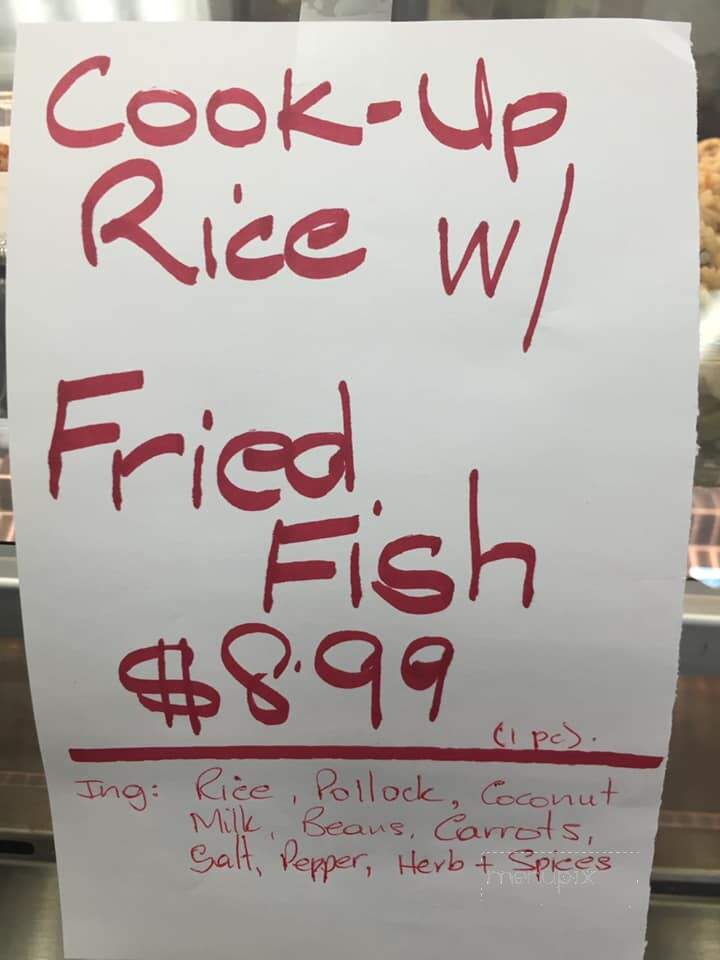 Cook-Up
Rice w/
Fried
Fish
$8.99
(1 pc).
Ing: Rice, Pollock, Coconut
Milk, Beans, Carrots,
Salt, Pepper, Herb + Spices
menupix